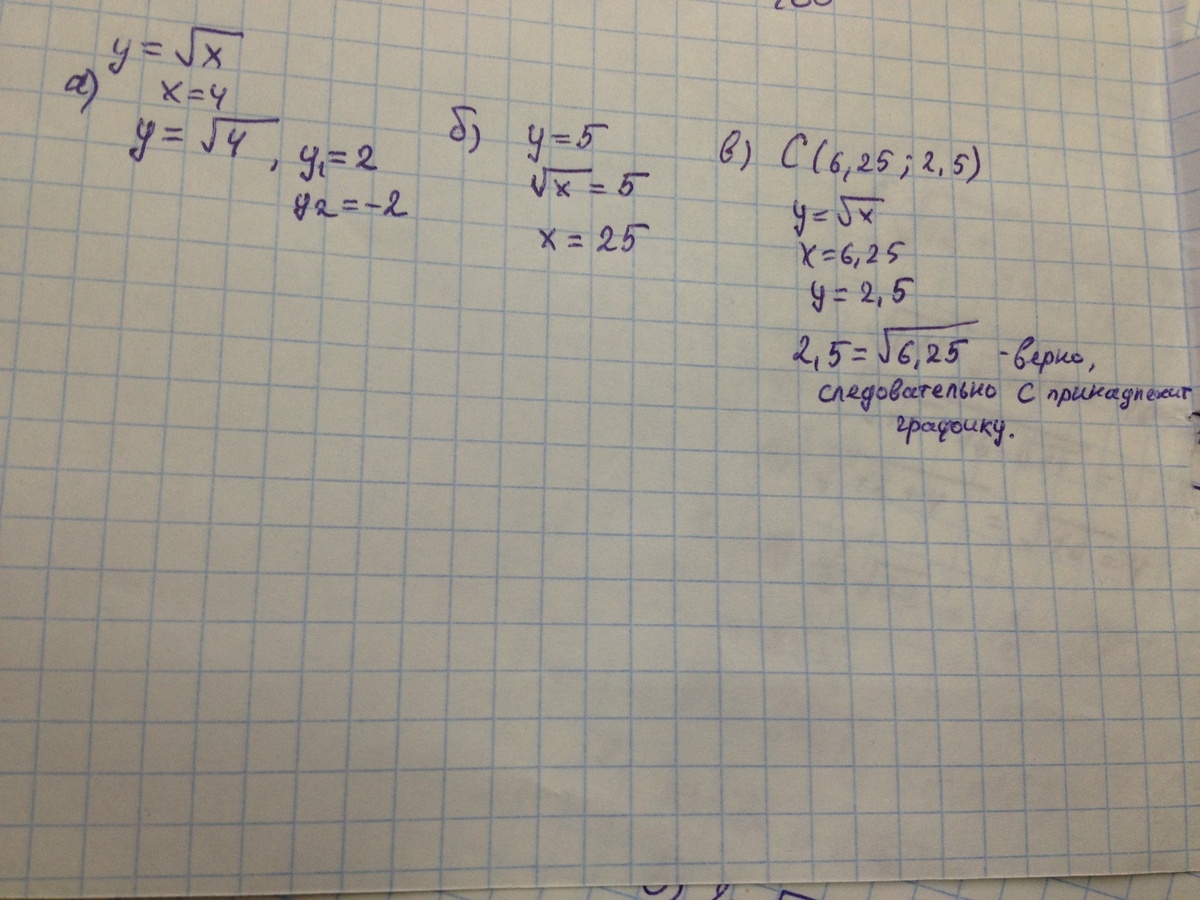 y = √x
а) x = 4
y = √4, y₁ = 2
y₂ = -2
б) y = 5
√x = 5
x = 25
в) C (6,25 ; 2,5)
y = √x
x = 6,25
y = 2,5
2,5 = √6,25 - верно,
следовательно C принадлежит
графику.